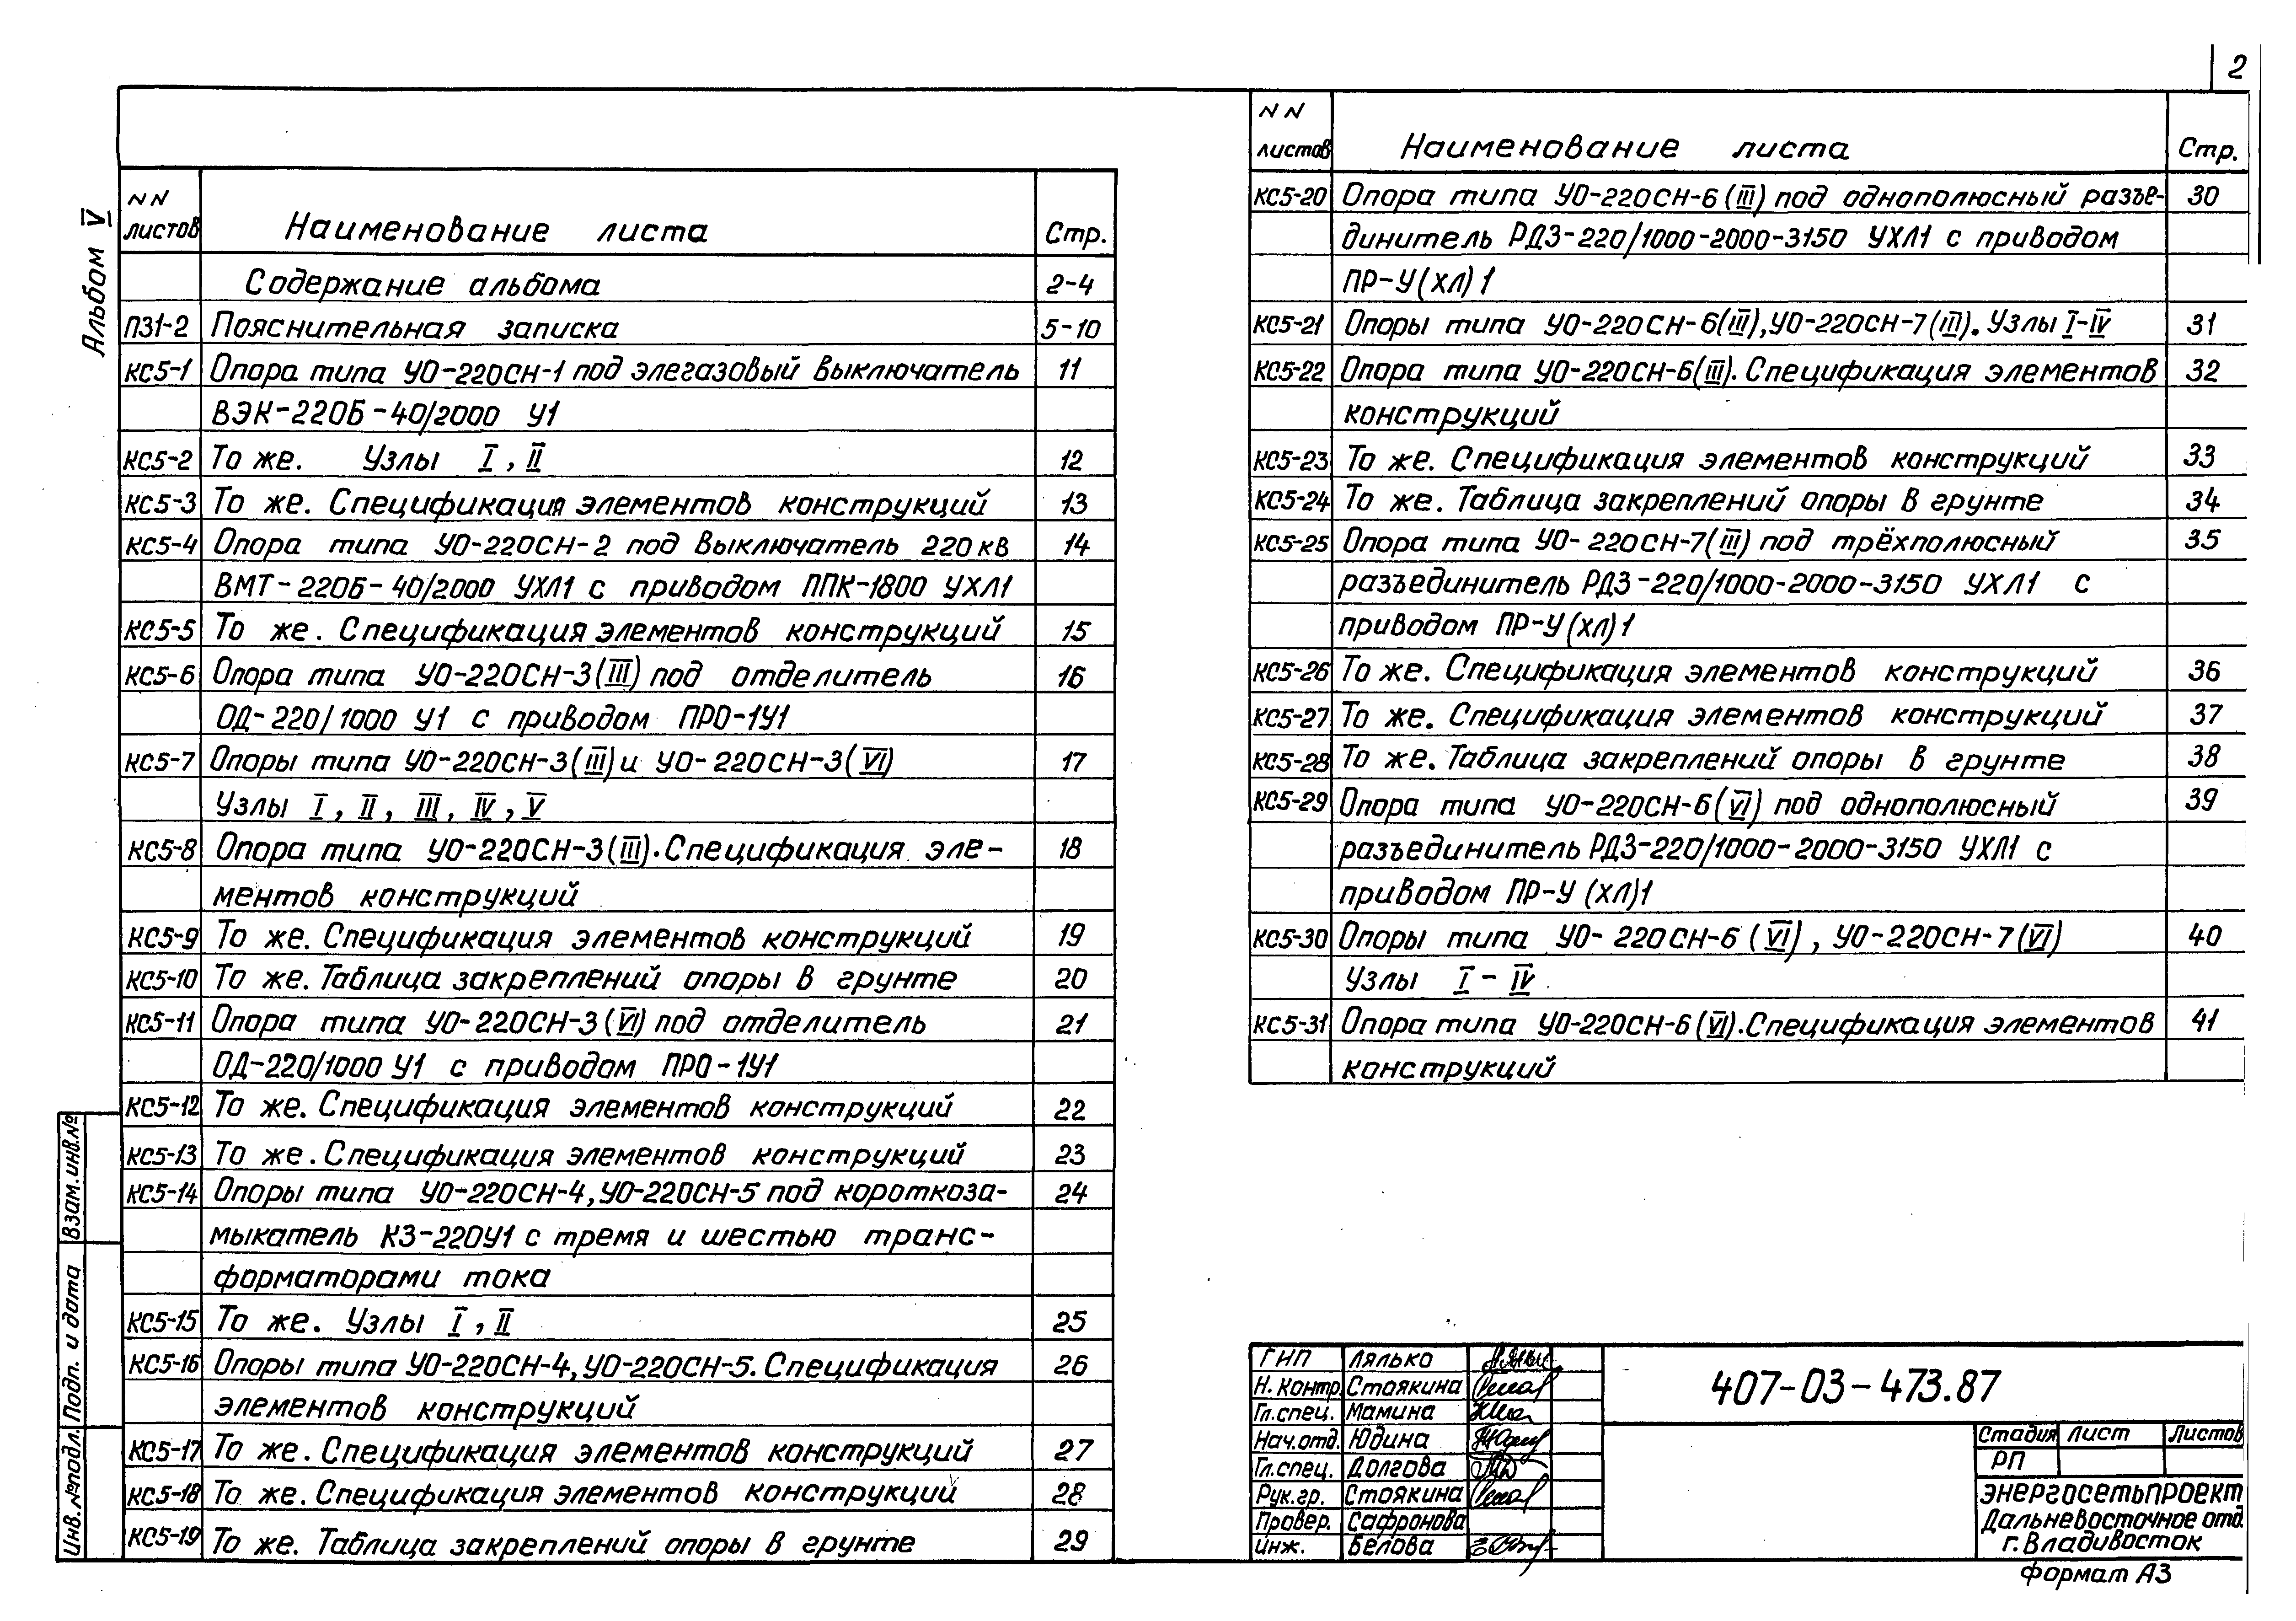 2
Альбом V
NN листов Наименование листа Стр.
Содержание альбома 2-4
ПЗ1-2 Пояснительная записка 5-10
КС5-1 Опора типа УО-220СН-1 под элегазовый выключатель 11
ВЭК-220Б-40/2000 У1
КС5-2 То же. Узлы I, II 12
КС5-3 То же. Спецификация элементов конструкций 13
КС5-4 Опора типа УО-220СН-2 под выключатель 220кв 14
ВМТ-220Б-40/2000 УХЛ1 с приводом ППК-1800 УХЛ1
КС5-5 То же. Спецификация элементов конструкций 15
КС5-6 Опора типа УО-220СН-3(III) под отделитель 16
ОД-220/1000 У1 с приводом ПРО-1У1
КС5-7 Опоры типа УО-220СН-3(III) и УО-220СН-3(VI) 17
Узлы I, II, III, IV, V
КС5-8 Опора типа УО-220СН-3(III). Спецификация эле- 18
ментов конструкций
КС5-9 То же. Спецификация элементов конструкций 19
КС5-10 То же. Таблица закреплений опоры в грунте 20
КС5-11 Опора типа УО-220СН-3(VI) под отделитель 21
ОД-220/1000 У1 с приводом ПРО-1У1
КС5-12 То же. Спецификация элементов конструкций 22
КС5-13 То же. Спецификация элементов конструкций 23
КС5-14 Опоры типа УО-220СН-4, УО-220СН-5 под короткоза- 24
мыкатель КЗ-220У1 с тремя и шестью транс-
форматорами тока
КС5-15 То же. Узлы I, II 25
КС5-16 Опоры типа УО-220СН-4, УО-220СН-5. Спецификация 26
элементов конструкций
КС5-17 То же. Спецификация элементов конструкций 27
КС5-18 То же. Спецификация элементов конструкций 28
КС5-19 То же. Таблица закреплений опоры в грунте 29
NN листов Наименование листа Стр.
КС5-20 Опора типа УО-220СН-6(III) под однополюсный разъе- 30
динитель РДЗ-220/1000-2000-3150 УХЛ1 с приводом
ПР-У(ХЛ)1
КС5-21 Опоры типа УО-220СН-6(III), УО-220СН-7(III). Узлы I-IV 31
КС5-22 Опора типа УО-220СН-6(III). Спецификация элементов 32
конструкций
КС5-23 То же. Спецификация элементов конструкций 33
КС5-24 То же. Таблица закреплений опоры в грунте 34
КС5-25 Опора типа УО-220СН-7(III) под трёхполюсный 35
разъединитель РДЗ-220/1000-2000-3150 УХЛ1 с
приводом ПР-У(ХЛ)1
КС5-26 То же. Спецификация элементов конструкций 36
КС5-27 То же. Спецификация элементов конструкций 37
КС5-28 То же. Таблица закреплений опоры в грунте 38
КС5-29 Опора типа УО-220СН-6(VI) под однополюсный 39
разъединитель РДЗ-220/1000-2000-3150 УХЛ1 с
приводом ПР-У (ХЛ)1
КС5-30 Опоры типа УО-220СН-6 (VI), УО-220СН-7(VI) 40
Узлы I-IV
КС5-31 Опора типа УО-220СН-6(VI). Спецификация элементов 41
конструкций
Взам.инв.№
Подп. и дата
Инв.№подл.
ГИП Лялько
Н.контр Стоякина
Гл.спец. Мамина
Нач.отд. Юдина
Гл.спец. Долгова
Рук.гр. Стоякина
Провер. Сафронова
Инж. Белова
407-03-473.87
Стадия Лист Листов
РП
Энергосетьпроект
Дальневосточное отд.
г.Владивосток
Формат А3